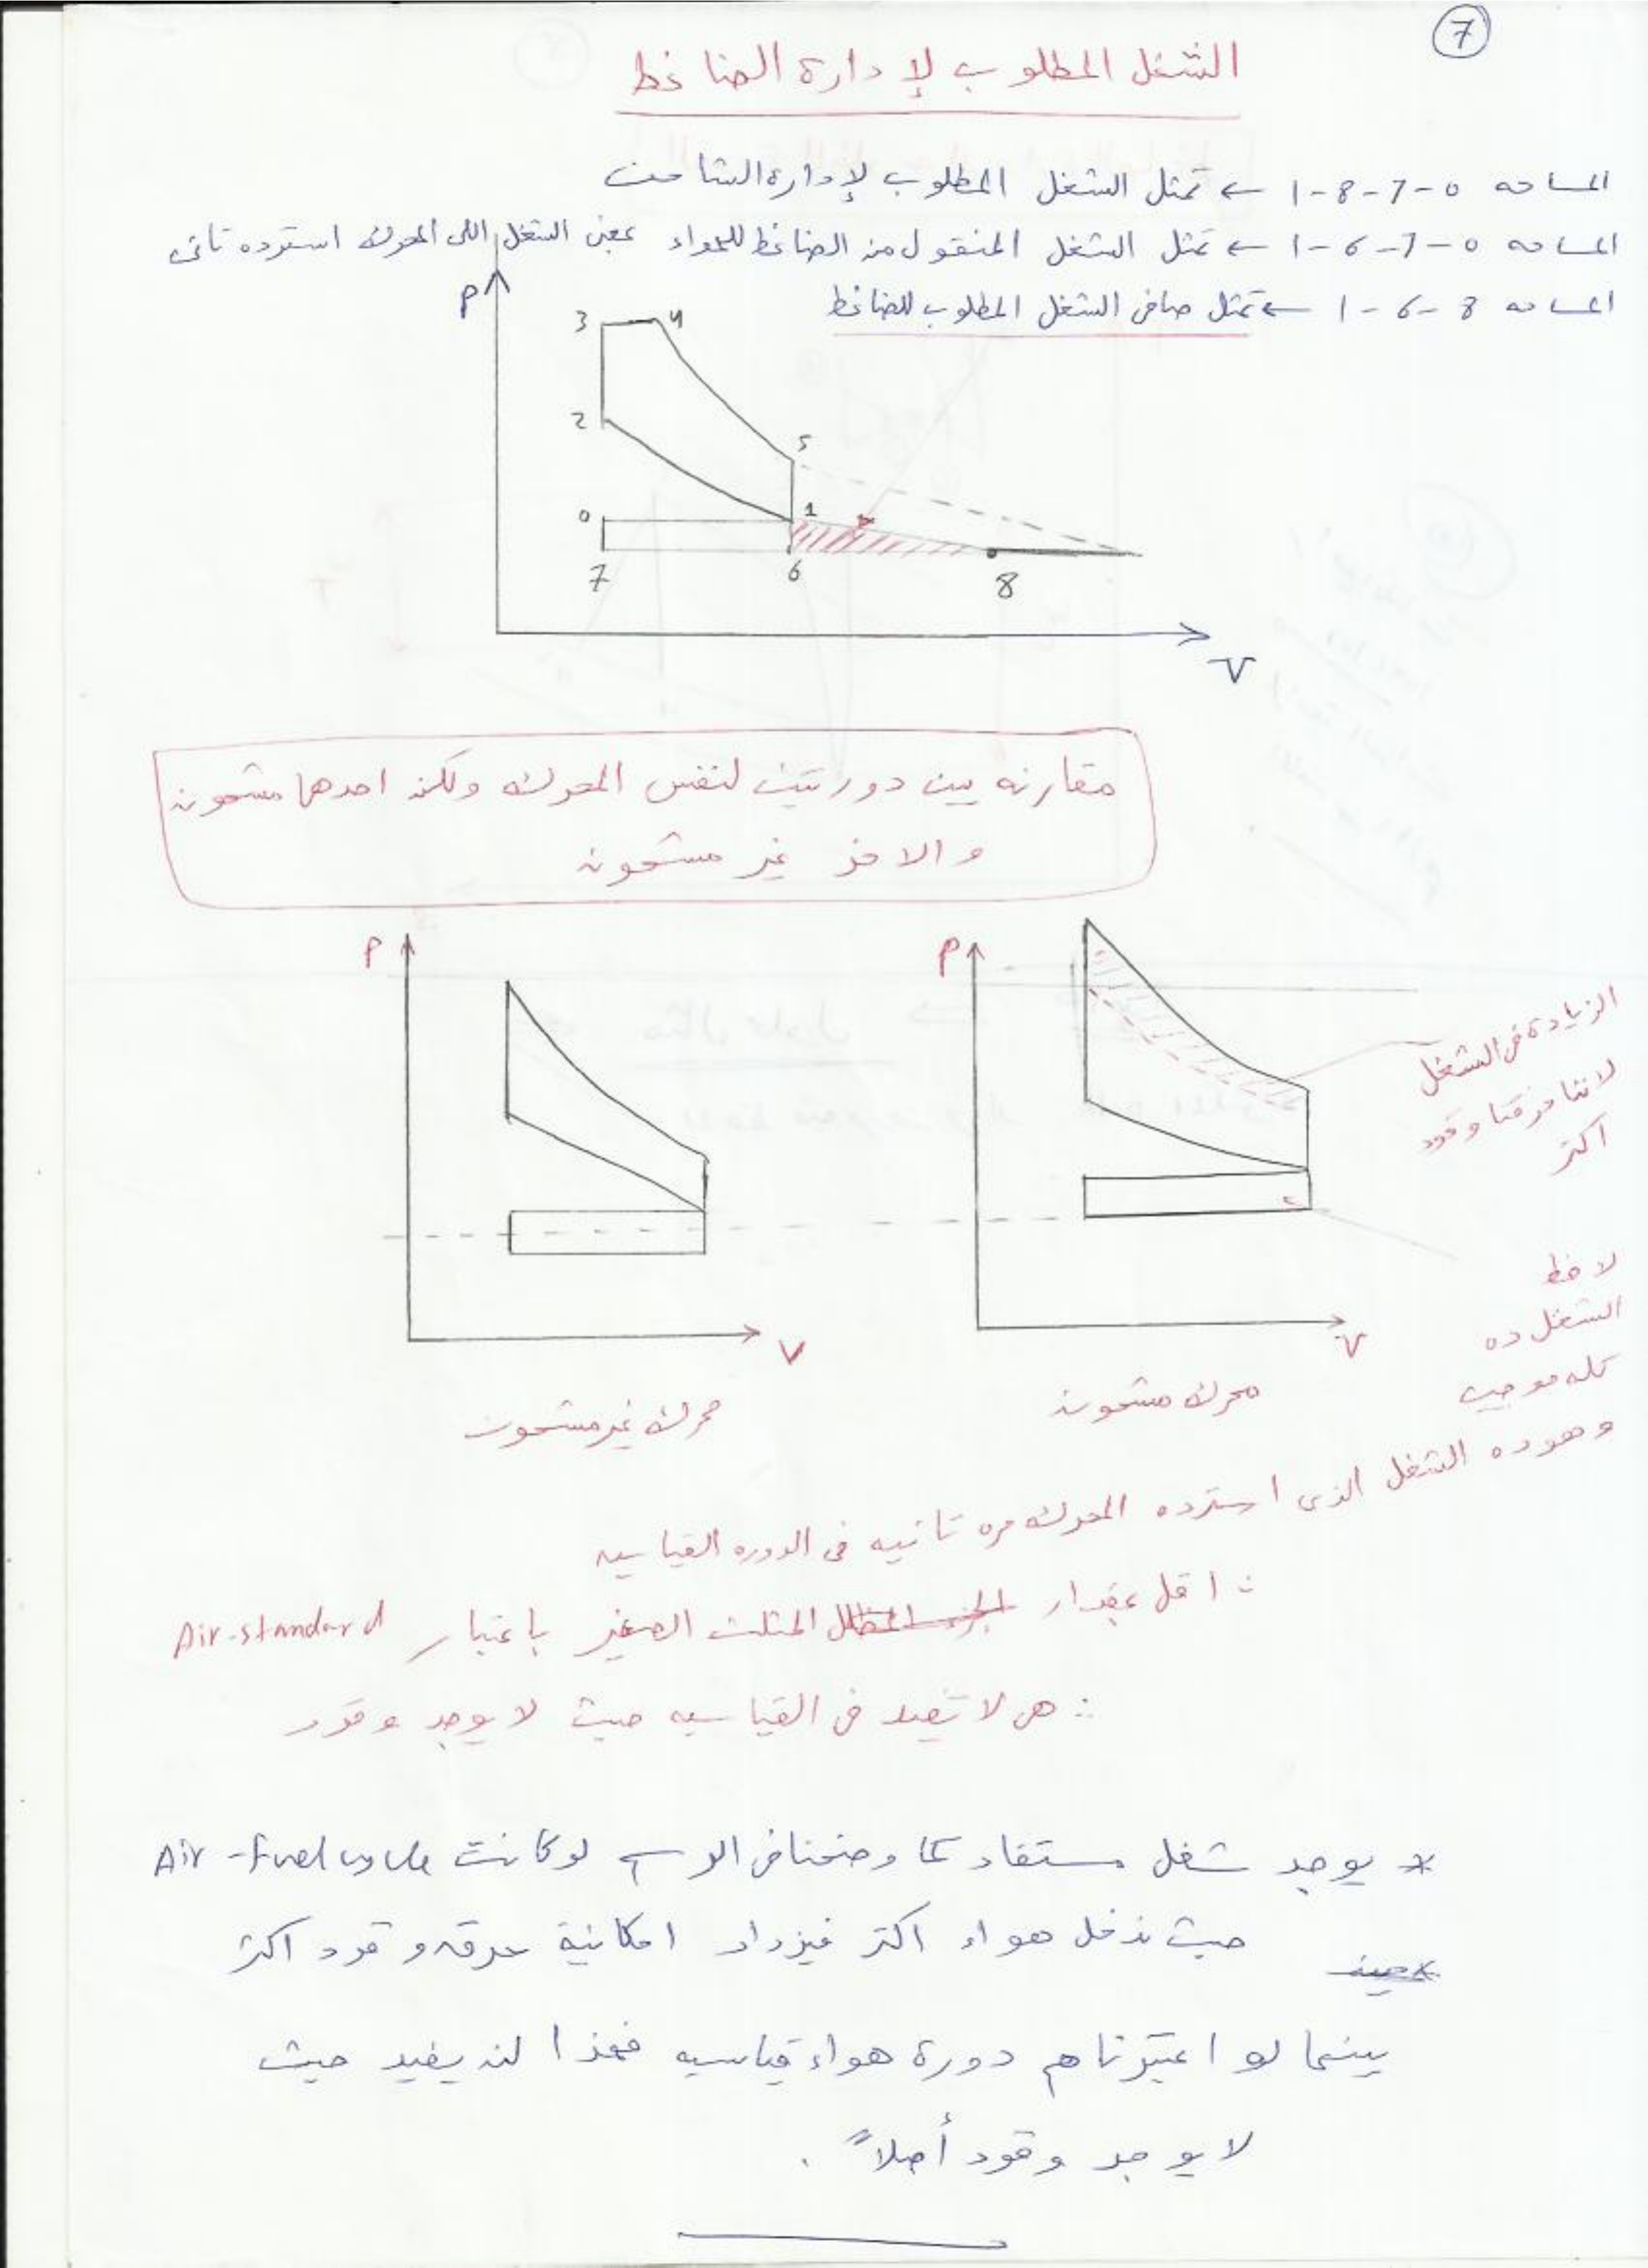 7
الشغل المطلوب لإدارة الضاغط
المساحه 0-7-8-1 ← تمثل الشغل المطلوب لإدارة الشاحن
المساحه 0-7-6-1 ← تمثل الشغل المنقول من الضاغط للهواء بمعنى الشغل اللى المحرك استرده تانى
المساحه 8-6-1 ← تمثل صافى الشغل المطلوب للضاغط
P
3 4
2
5
0 1
7 6 8
V
مقارنه بين دورتين لنفس المحرك ولكن احدهما مشحون
والاخر غير مشحون
P
P
الزيادة فى الشغل
لاننا حرقنا وقود
اكتر
لاحظ
الشغل ده
كله موجب
V
V
محرك غير مشحون
محرك مشحون
وهو ده الشغل الذى استرده المحرك مره تانيه فى الدوره القياسيه
∴ اقل بمقدار المثلث الصغير باعتبار Air-standard
∴ هى لا تفيد فى القياسيه حيث لا يوجد وقود
* يوجد شغل مستفاد كما وضحنا فى الرسم لو كانت Air-fuel cycle
حيث ندخل هواء اكتر فيزداد امكانية حرق وقود اكتر
بينما لو اعتبرناهم دورة هواء قياسيه فهذا لن يفيد حيث
لا يوجد وقود أصلاً .